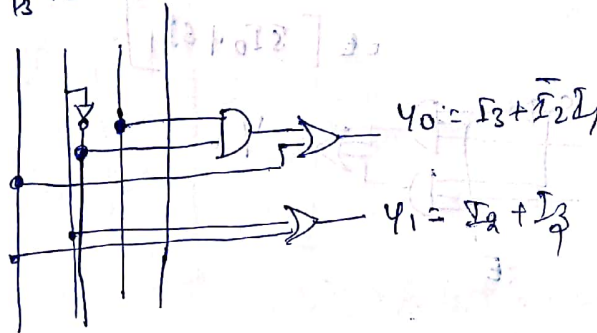 I3
Y0 = I3 + I̅2I1
Y1 = I2 + I3